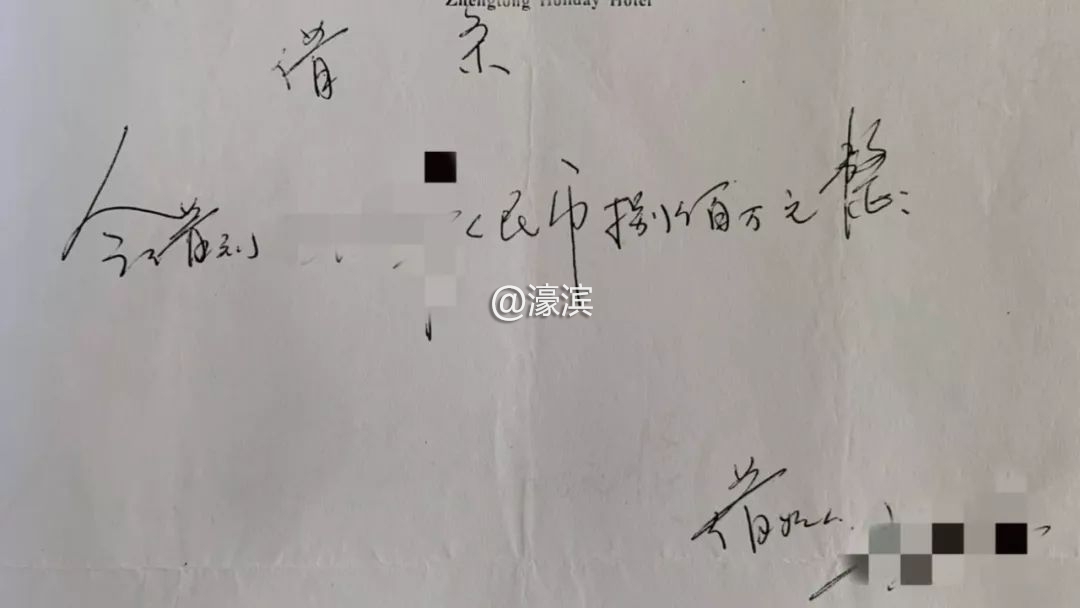 Zhengtong Holiday Hotel
借条
今借到 人民币捌佰万元整
@濠滨
借款人